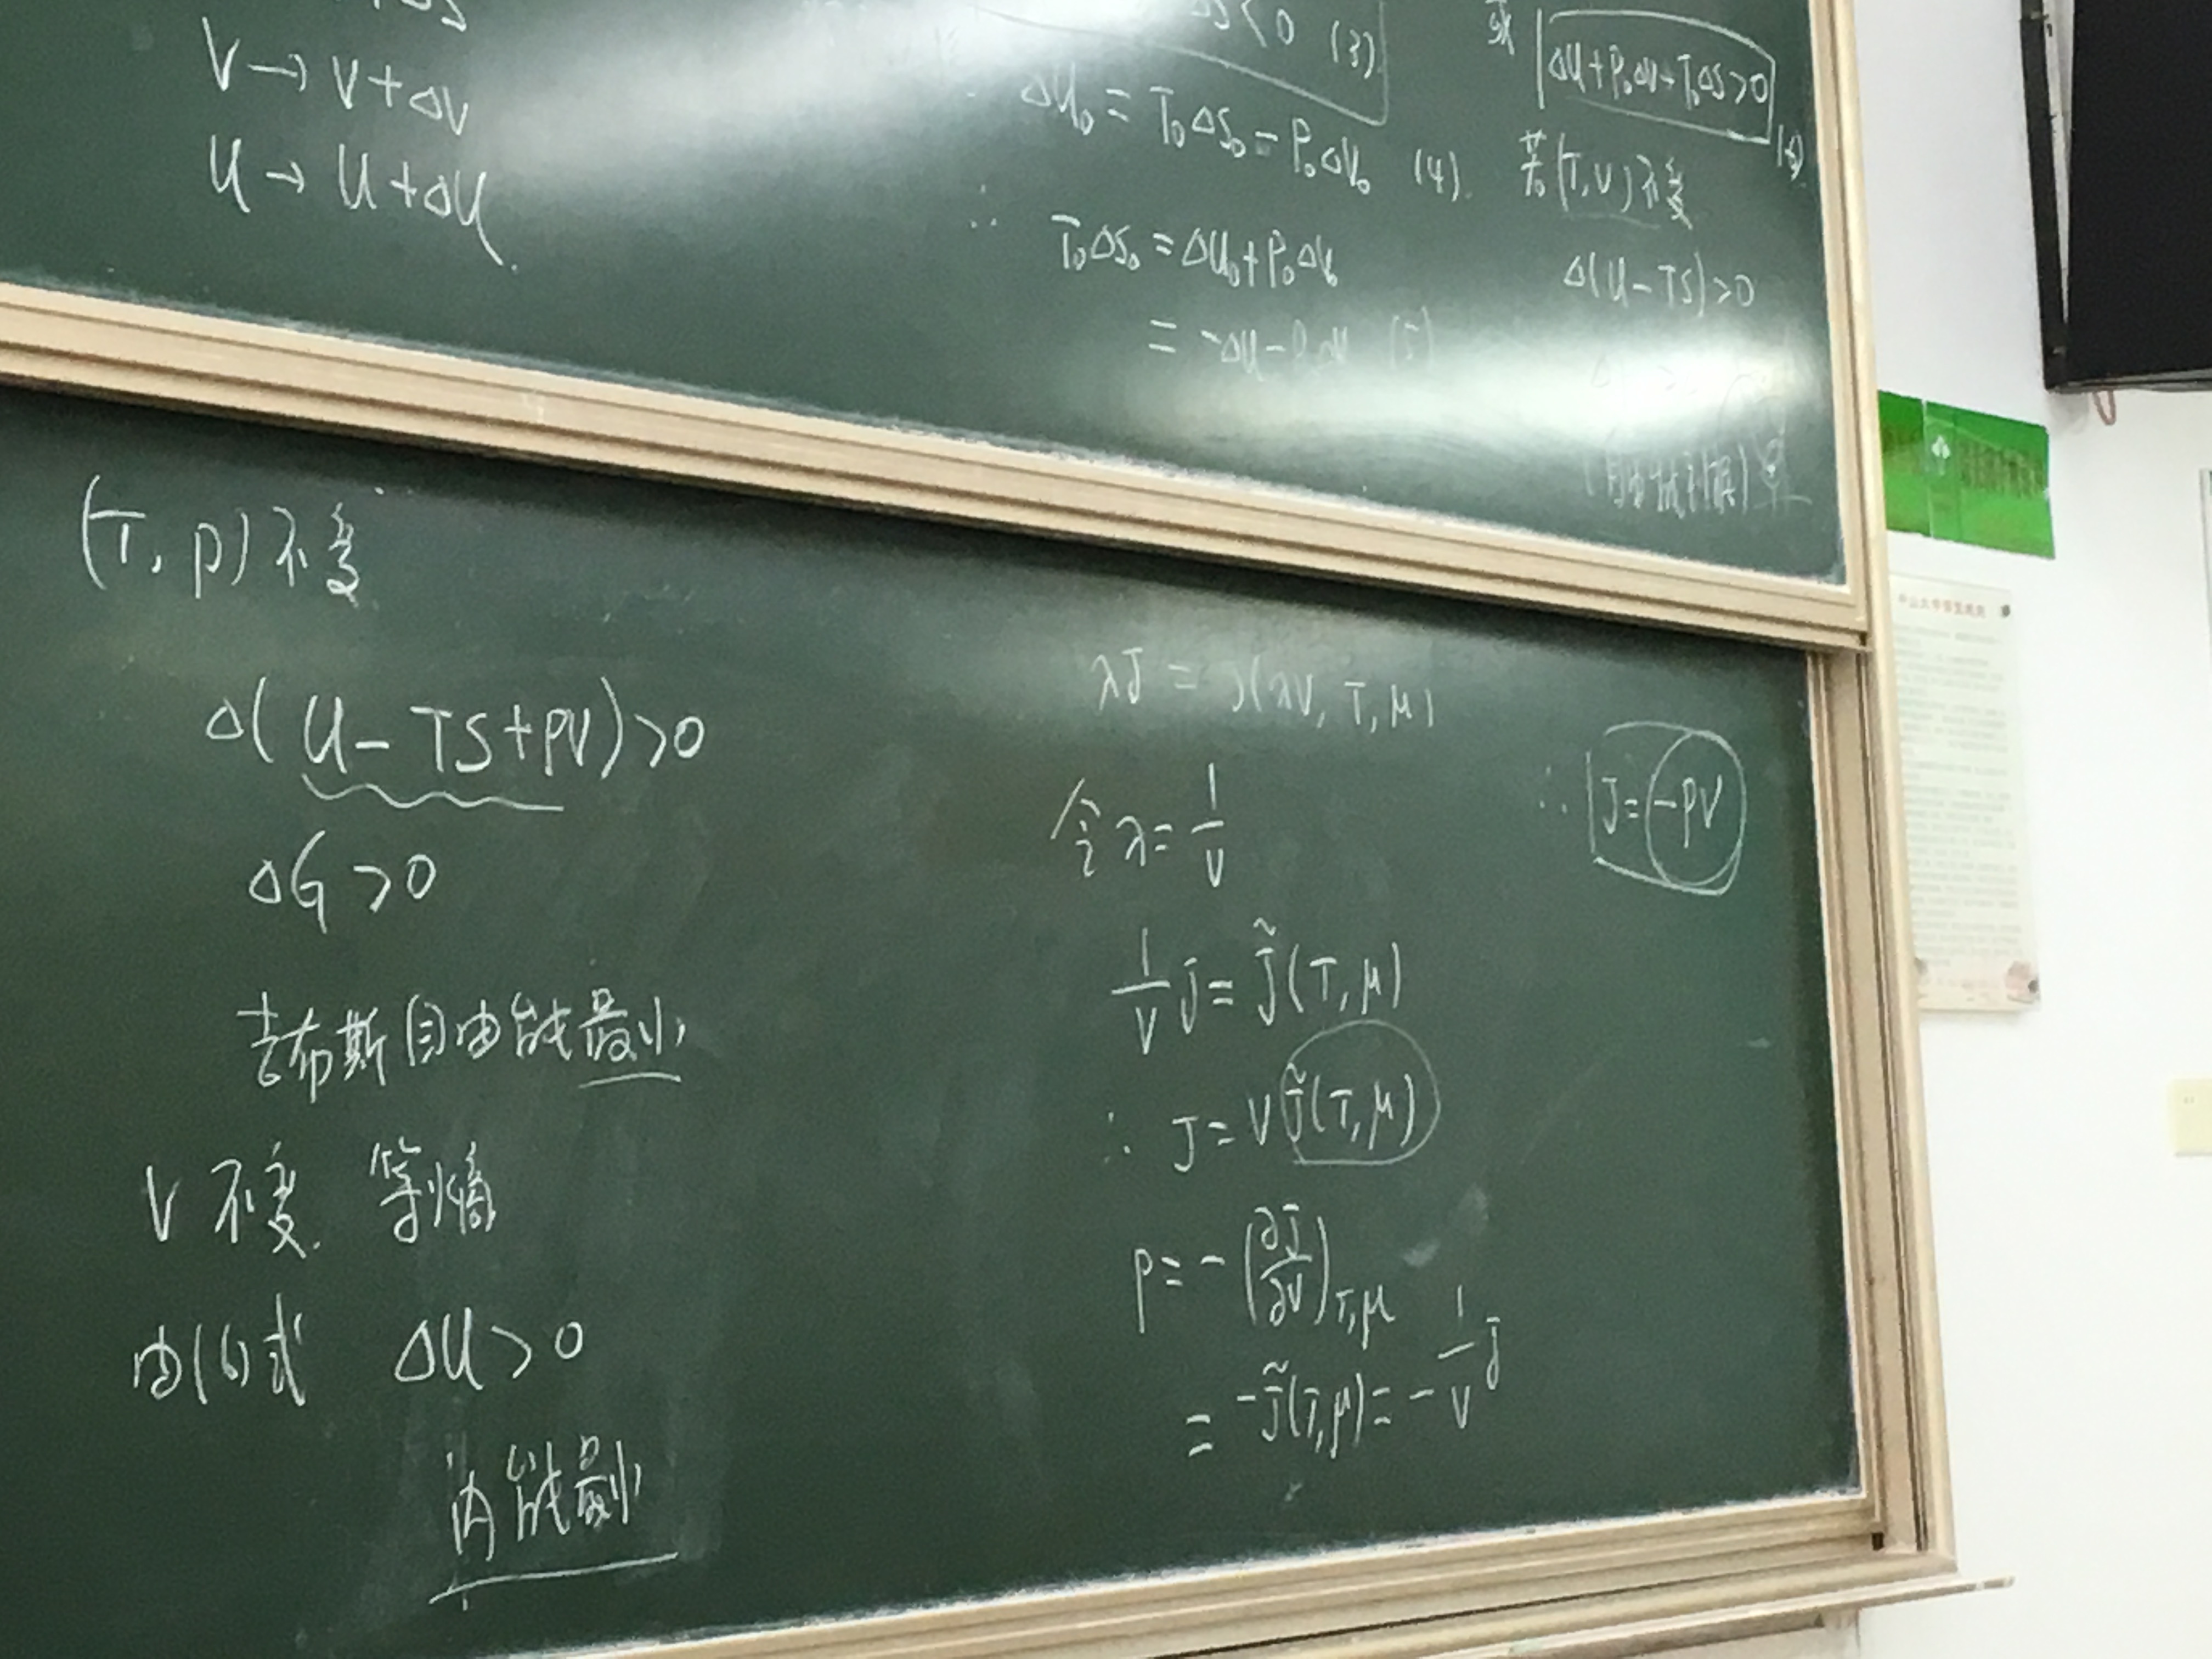 V → V + ΔV
U → U + ΔU
ΔS < 0 (3)
ΔU₀ = T₀ΔS₀ - P₀ΔV₀ (4)
∴ T₀ΔS₀ = ΔU₀ + P₀ΔV₀
= -ΔU - P₀ΔV (5)
或 ΔU + P₀ΔV - T₀ΔS > 0 (6)
若 (T, V) 不变
Δ(U - TS) > 0
(T, P) 不变
Δ(U - TS + PV) > 0
ΔG > 0
吉布斯自由能最小
V 不变. 等熵
由(6)式 ΔU > 0
内能最小
λJ = J(λV, T, μ)
令 λ = 1/V
1/V J = J̃(T, μ)
∴ J = V J̃(T, μ)
P = -(∂J/∂V)T,μ
= -J̃(T, μ) = -1/V J
∴ J = -PV